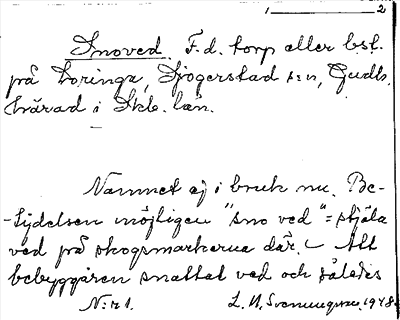 1 — 2
Snoved. F.d. torp eller bst.
på Loringa, Sjogerstad s:n, Gudh.
härad i Skb. län.
Namnet ej i bruk nu. Be-
-tydelsen möjligen "sno ved" = stjäla
ved på skogsmarkerna där. – Att
bebyggaren snattat ved och således
N:r 1. L. N. Svanungsson. 1948.